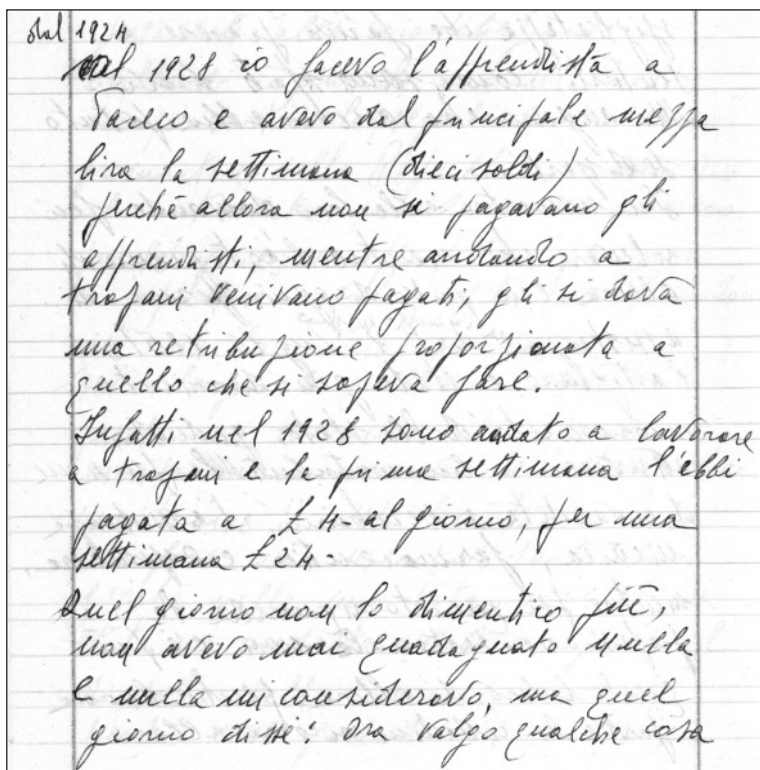 dal 1924
al 1928 io facevo l'apprendista a
Tacco e avevo dal principale mezza
lira la settimana (dieci soldi)
perché allora non si pagavano gli
apprendisti, mentre andando a
trapani venivano pagati, gli si dava
una retribuzione proporzionata a
quello che si sapeva fare.
Infatti nel 1928 sono andato a lavorare
a trapani e la prima settimana l'ebbi
pagata a £ 4- al giorno, per una
settimana £ 24-
Quel giorno non lo dimentico più,
non avevo mai guadagnato nulla
e nulla mi consideravo, ma quel
giorno dissi: ora valgo qualche cosa